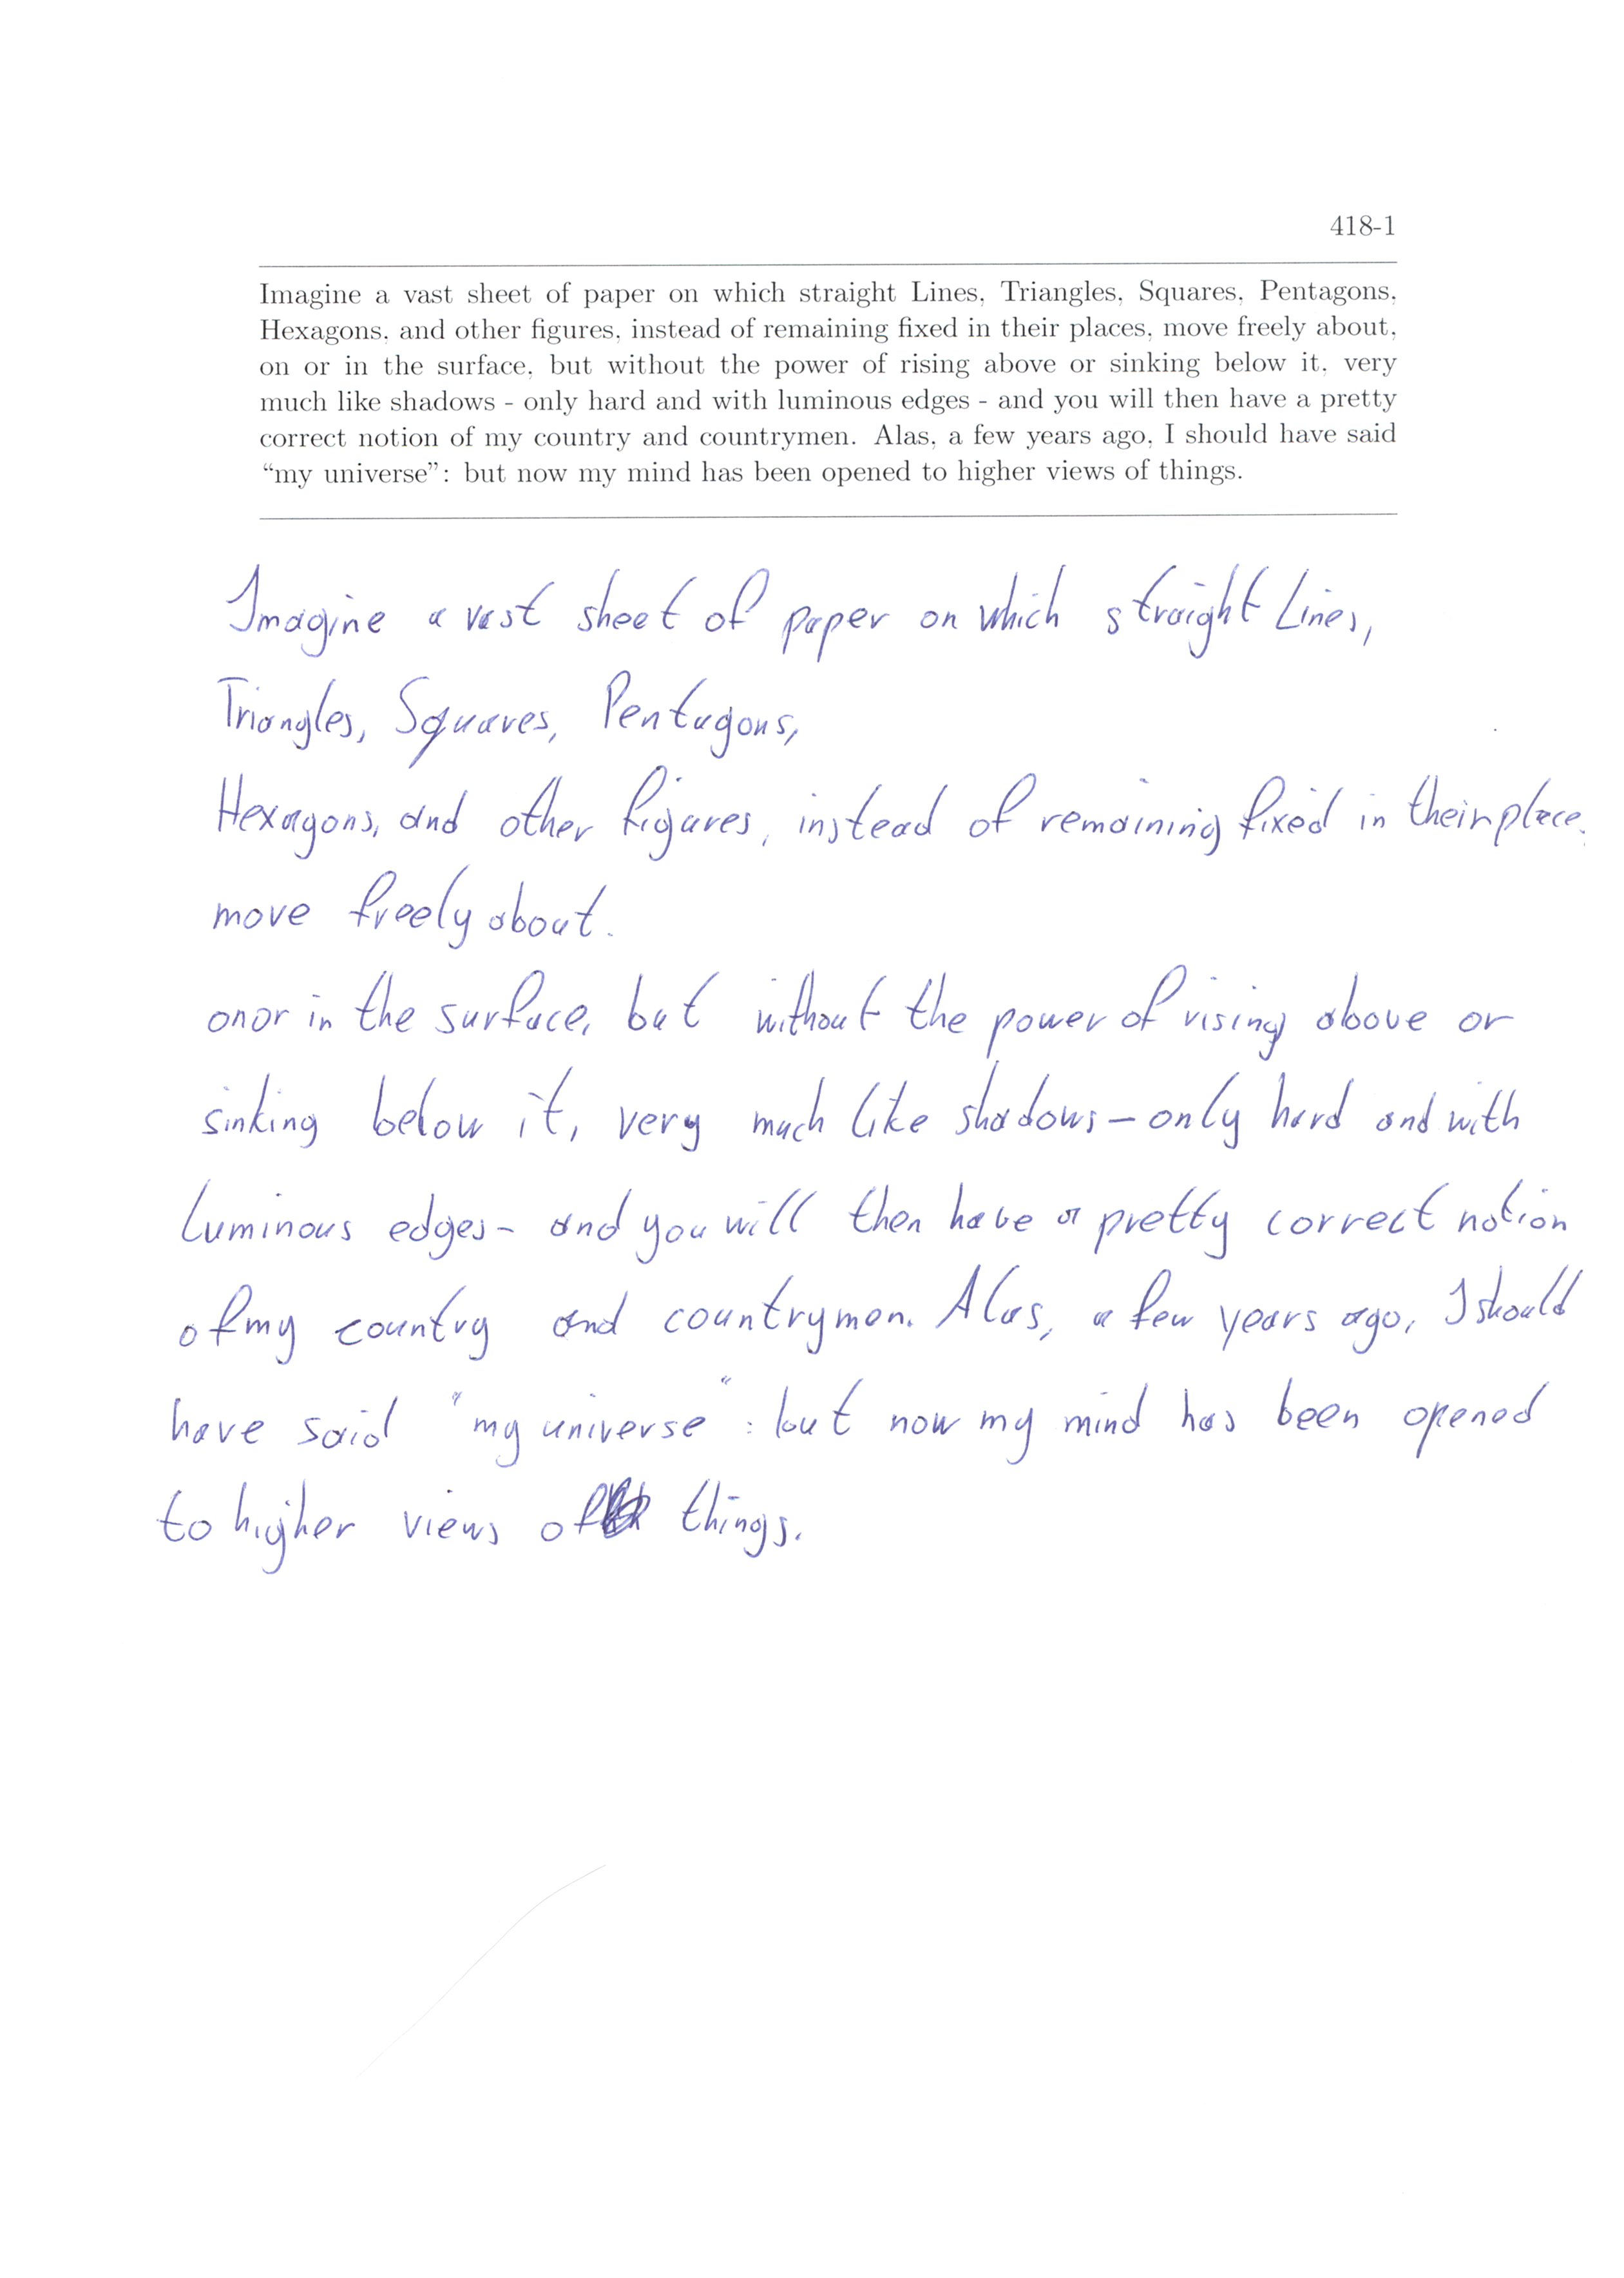 418-1
Imagine a vast sheet of paper on which straight Lines, Triangles, Squares, Pentagons,
Hexagons, and other figures, instead of remaining fixed in their places, move freely about,
on or in the surface, but without the power of rising above or sinking below it, very
much like shadows - only hard and with luminous edges - and you will then have a pretty
correct notion of my country and countrymen. Alas, a few years ago, I should have said
“my universe”: but now my mind has been opened to higher views of things.
Imagine a vast sheet of paper on which straight Lines,
Triangles, Squares, Pentagons,
Hexagons, and other figures, instead of remaining fixed in their place,
move freely about.
on or in the surface, but without the power of rising above or
sinking below it, very much like shadows – only hard and with
luminous edges - and you will then have a pretty correct notion
of my country and countrymen. Alas, a few years ago, I should
have said "my universe": but now my mind has been opened
to higher views of things.